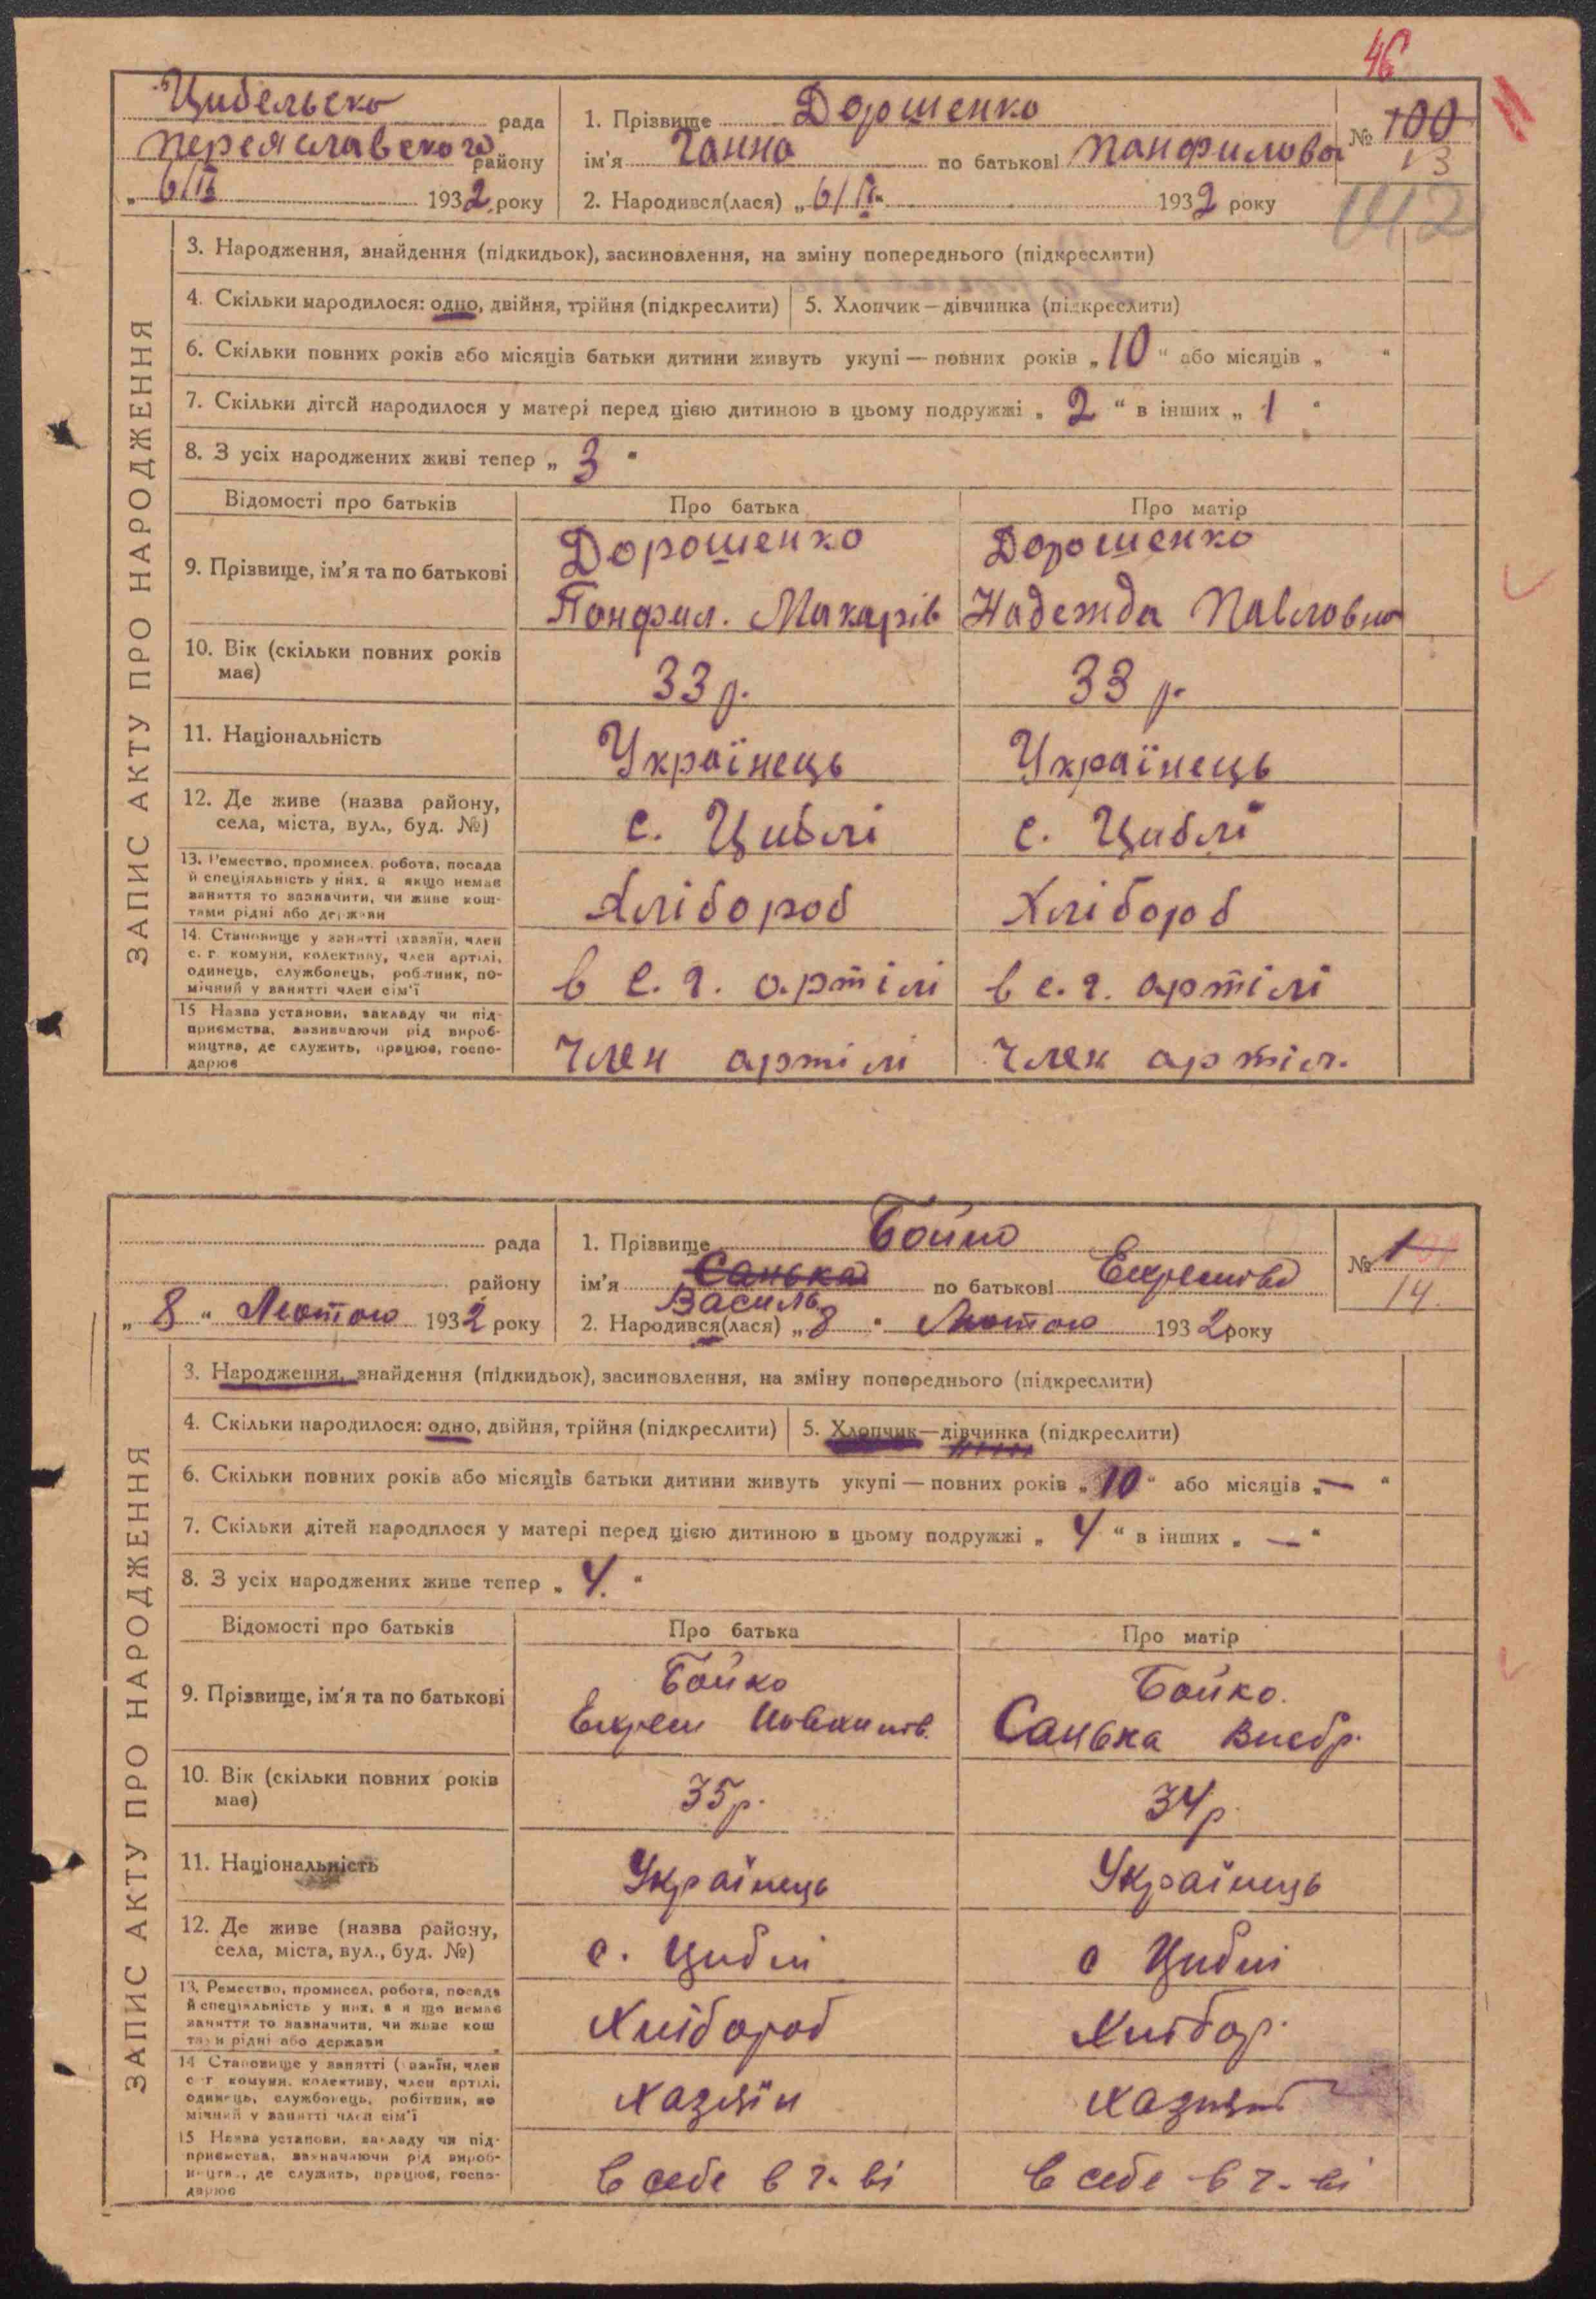 46
Цибельско рада
Переяславского району
„ 6/II 1932 року
1. Прізвище Дорошенко
ім'я Ганна по батькові Панфилова
2. Народився(лася) „6/II 1932 року
№ 100
13
142
ЗАПИС АКТУ ПРО НАРОДЖЕННЯ
3. Народження, знайдення (підкидьок), засиновлення, на зміну попереднього (підкреслити)
4. Скільки народилося: одно, двійня, трійня (підкреслити) 5. Хлопчик—дівчинка (підкреслити)
6. Скільки повних років або місяців батьки дитини живуть укупі — повних років „ 10 “ або місяців „ “
7. Скільки дітей народилося у матері перед цією дитиною в цьому подружжі „ 2 “ в інших „ 1 “
8. З усіх народжених живі тепер „ 3 “
Відомості про батьків Про батька Про матір
9. Прізвище, ім'я та по батькові
Дорошенко Панфил. Макарів
Дорошенко Надежда Павловна
10. Вік (скільки повних років має)
33 р. 33 р.
11. Національність Українець Українець
12. Де живе (назва району, села, міста, вул., буд. №)
с. Циблі с. Циблі
13. Ремество, промисел, робота, посада й спеціяльність у них, а якщо немає заняття то зазначити, чи живе коштами рідні або держави
Хлібороб Хліборб
14. Становище у занятті (хазяїн, член с. г. комуни, колективу, член артілі, одинець, службовець, робітник, помічний у занятті член сім'ї
в с. г. артілі в с. г. артілі
15 Назва установи, закладу чи підприємства, зазначаючи рід виробництва, де служить, працює, господарює
Член артілі Член артіл.
рада
району
„ 8 “ Лютого 1932 року
1. Прізвище Бойко
ім'я Санька по батькові
Василь
2. Народився(лася) „8 “ Лютого 1932 року
№ 1
14.
ЗАПИС АКТУ ПРО НАРОДЖЕННЯ
3. Народження, знайдення (підкидьок), засиновлення, на зміну попереднього (підкреслити)
4. Скільки народилося: одно, двійня, трійня (підкреслити) 5. Хлопчик—дівчинка (підкреслити)
6. Скільки повних років або місяців батьки дитини живуть укупі — повних років „ 10 “ або місяців „ — “
7. Скільки дітей народилося у матері перед цією дитиною в цьому подружжі „ 4 “ в інших „ — “
8. З усіх народжених живе тепер „ 4. “
Відомості про батьків Про батька Про матір
9. Прізвище, ім'я та по батькові
Бойко
Бойко. Санька
10. Вік (скільки повних років має)
35 р. 34 р.
11. Національність Українець Українець
12. Де живе (назва району, села, міста, вул., буд. №)
с. Циблі с Циблі
13. Ремество, промисел, робота, посада й спеціяльність у них, а якщо немає заняття то зазначити, чи живе коштами рідні або держави
Хлібороб Хлібор.
14 Становище у занятті (хазяїн, член с г комуни, колективу, член артілі, одинець, службовець, робітник, помічний у занятті член сім'ї
Хазяїн
15 Назва установи, закладу чи підприємства, зазначаючи рід виробництва, де служить, працює, господарює
в себе в г-ві в себе в г-ві